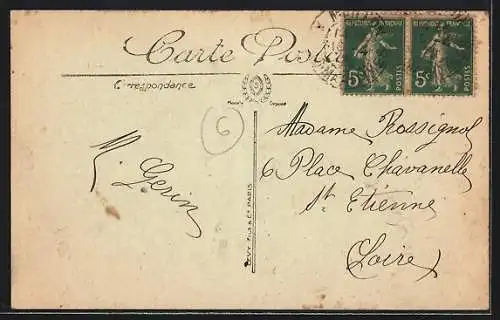 Carte Postale
Correspondence
Marque Déposée
REPUBLIQUE FRANCAISE
5c POSTES
REPUBLIQUE FRANCAISE
5c POSTES
6
M. Gerin
LEVY FILS & Cie PARIS
Madame Rossignol
6 Place Chavanelle
St. Etienne
Loire